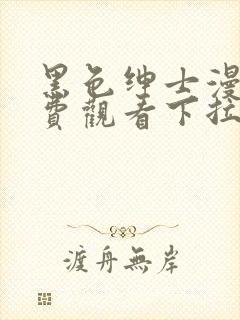 黑色绅士漫
費觀看下拉
渡舟無岸